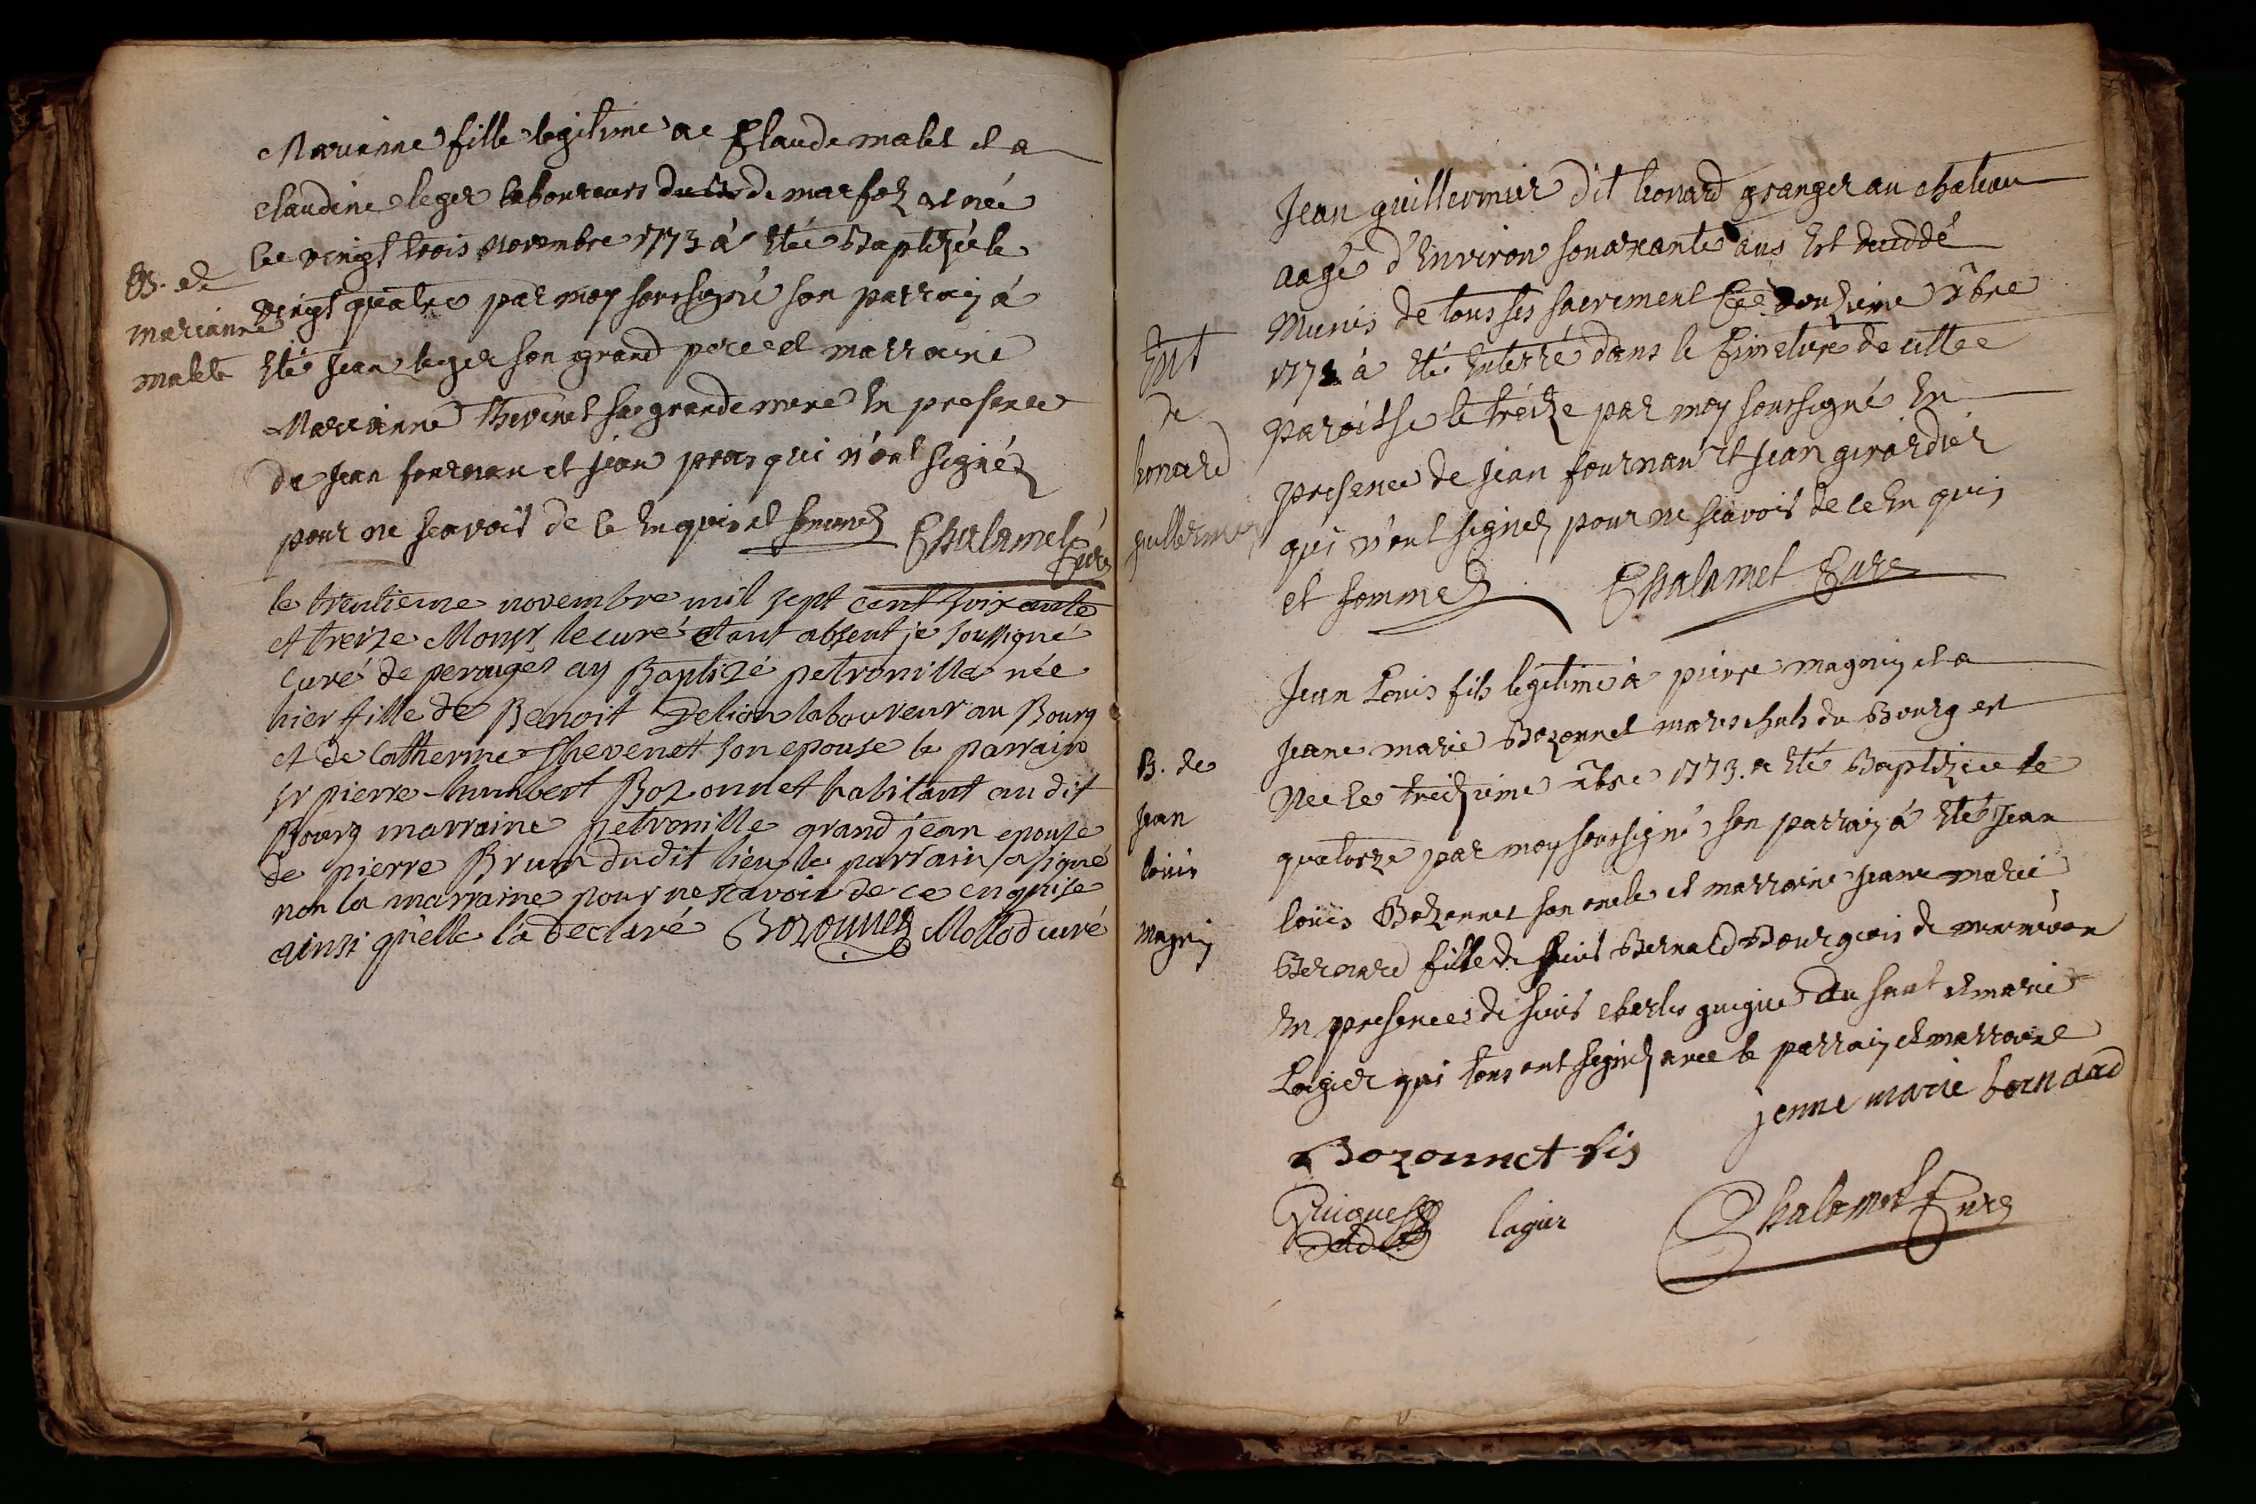 Marianne fille legitime a Claude malet et a
claudine leger laboureurs de marfoz est née
le vingt trois novembre 1773 a été Baptizée le
vingt quatre par moy soussigné son parrain a
été jean leger son grand pere et marraine
Marianne thevenet sa grande mere En presence
de jean fournan et jean pras qui n'ont signéz
pour ne scavoir de ce Enquis et sommez Chalamel
Curé
B. de
marianne
malet
le trentieme novembre mil sept cent soixante
et treize Monsr. le curé etant absent je soussigné
Curé de perouges ay Baptizé petronille née
hier fille de Benoit Delion laboureur au Bourg
et de Catherine thevenet son epouse le parrain
sr pierre humbert Bozonnet habitant au dit
Bourg marraine petronille grand jean epouse
de pierre Brun dudit lieu le parrain a signé
non la marraine pour ne scavoir de ce enquise
ainsi qu'elle la declaré Bozonnet Mollod curé
Jean guillermier dit leonard granger au chateau
aagé d'Environ soixante ans Est deceddé
Munis de tous ses sacrement le douzieme xbre
1773 a été Enterré dans le Cimetiere de cette
Paroisse le treize par moy soussigné En
presence de jean fournan et jean girardier
qui n'ont signez pour ne scavoir de ce Enquis
et sommez Chalamel Curé
Ent
de
leonard
guillermier
Jean Louis fils legitime a pierre magnin et a
Jeane marie Bozonnet mareschals du Bourg est
Née le treizieme xbre 1773 a été Baptizée le
quatorze par moy soussigné son parrain a été Jean
louis Bozonnet son oncle et marraine jeane marie
Bernard fille de sieur Bernard Bourgeois de
En presences de sieur charles guigue du saut et marie
Lagier qui tous ont signez avec le parrain et marraine
B. de
Jean
louis
Magnin
jenne marie bernard
Bozonnet fis
Guigues lagier Chalamel Curé